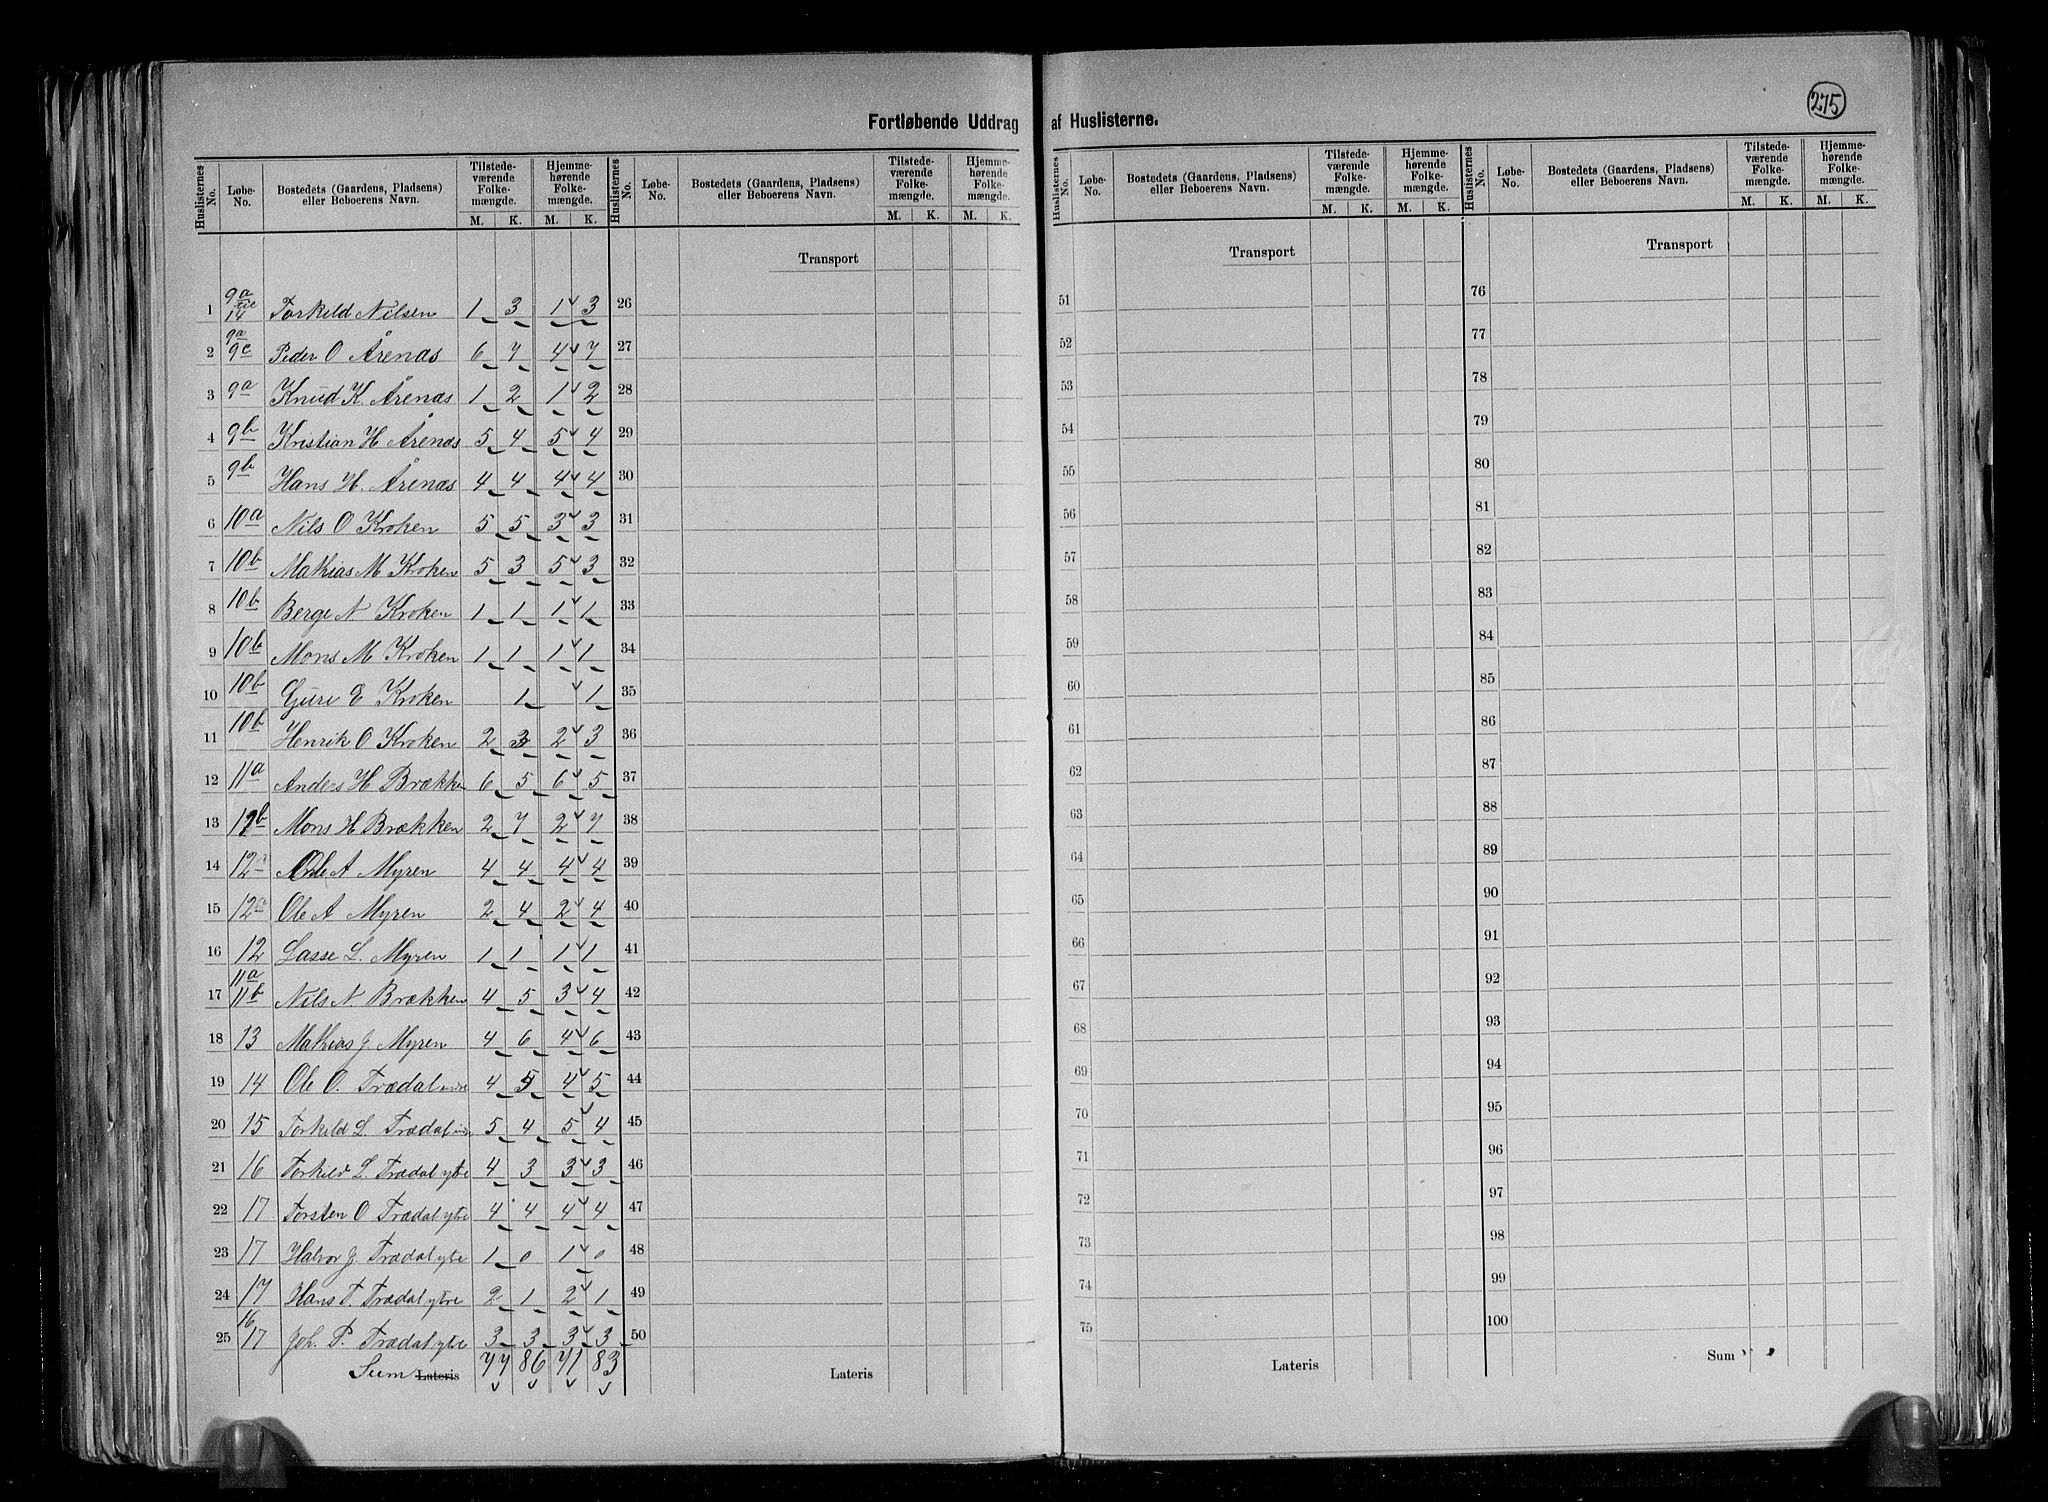 275
Fortløbende Uddrag af Huslisterne.
Huslisternes No. Løbe-No. Bostedets (Gaardens, Pladsens) eller Beboerens Navn. Tilstede-værende Folke-mængde. M. K. Hjemme-hørende Folke-mængde. M. K.
Huslisternes No. Løbe-No. Bostedets (Gaardens, Pladsens) eller Beboerens Navn. Tilstede-værende Folke-mængde. M. K. Hjemme-hørende Folke-mængde. M. K.
Huslisternes No. Løbe-No. Bostedets (Gaardens, Pladsens) eller Beboerens Navn. Tilstede-værende Folke-mængde. M. K. Hjemme-hørende Folke-mængde. M. K.
Huslisternes No. Løbe-No. Bostedets (Gaardens, Pladsens) eller Beboerens Navn. Tilstede-værende Folke-mængde. M. K. Hjemme-hørende Folke-mængde. M. K.
Transport Transport Transport
1 9a 14 Torkild Nilsen 1 3 1 3 26 51 76
2 9a 9c Peder O Årenas 6 7 4 7 27 52 77
3 9a Knud K. Årenas 1 2 1 2 28 53 78
4 9b Kristian H Årenas 5 4 5 4 29 54 79
5 9b Hans H. Årenas 4 4 4 4 30 55 80
6 10a Nils O Kroken 5 5 3 3 31 56 81
7 10b Mathias M Kroken 5 3 5 3 32 57 82
8 10b Berge N Kroken 1 1 1 1 33 58 83
9 10b Mons M Kroken 1 1 1 1 34 59 84
10 10b Guri E Kroken 1 1 35 60 85
11 10b Henrik O Kroken 2 3 2 3 36 61 86
12 11a Anders H Brækken 6 5 6 5 37 62 87
13 11b Mons H Brækken 2 7 2 7 38 63 88
14 12a Ole A Myren 4 4 4 4 39 64 89
15 12a Ole A Myren 2 4 2 4 40 65 90
16 12 Lasse L. Myren 1 1 1 1 41 66 91
17 11a 11b Nils N Brækken 4 5 3 4 42 67 92
18 13 Mathias J. Myren 4 6 4 6 43 68 93
19 14 Ole O. Trædal indre 4 5 4 5 44 69 94
20 15 Torkild L. Trædal indre 5 4 5 4 45 70 95
21 16 Torkild L. Trædal ytre 4 3 3 3 46 71 96
22 17 Torsten O Trædal ytre 4 4 4 4 47 72 97
23 17 Halvor J. Trædal ytre 1 0 1 0 48 73 98
24 17 Hans T. Trædal ytre 2 1 2 1 49 74 99
25 16 17 Joh. P. Trædal ytre 3 3 3 3 50 75 100
Sum Lateris 77 86 71 83 Lateris Lateris Sum